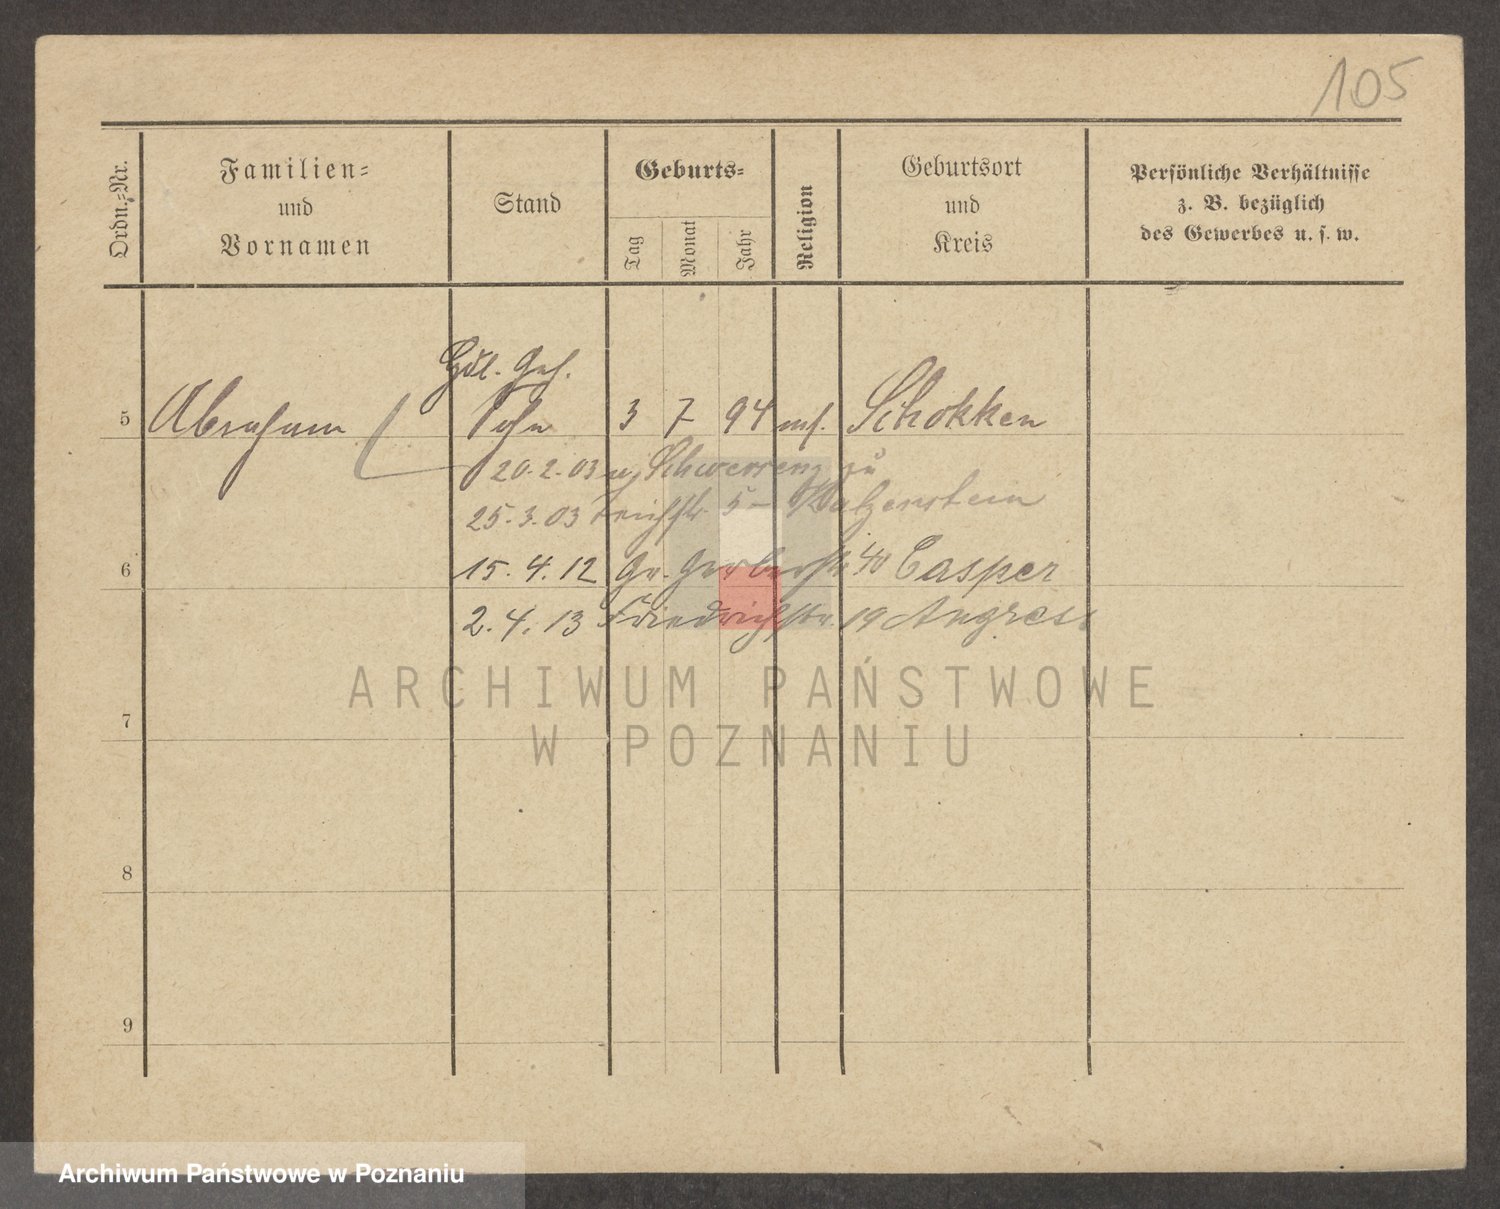 105
Ordn.-Nr.
Familien-
und
Vornamen
Stand
Geburts-
Tag
Monat
Jahr
Religion
Geburtsort
und
Kreis
Persönliche Verhältnisse
z. B. bezüglich
des Gewerbes u. s. w.
Hdl. Geh.
5 Abraham Sohn 3 7 94 mos. Schokken
20.2.03 Schwersenz zu
25.3.03 5 - Katzenstein
6 15.4.12 Gr. Gerberstr 40 Casper
2.4.13 Friedrichstr. 19 Angress
ARCHIWUM PAŃSTWOWE
W POZNANIU
7
8
9
Archiwum Państwowe w Poznaniu